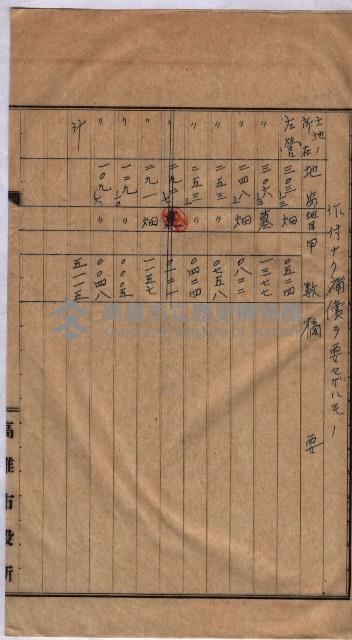 作付ナク補償ヲ要セザルモノ
土地ノ所在 地番 地目 甲数 摘要
左営 三〇三ノ三 畑 〇五二四
〃 三〇六ノ三 墓 一三七七
〃 二四八ノ二 畑 〇八二二
〃 二五三ノ三 〃 〇七五八
〃 二五三 〃 〇四二四
〃
〃 二九一 畑 一一五七
〃 一二九ノ〇 〃 〇〇〇五
〃 一〇九六 〃 〇〇四八
計 五一一五
高雄市役所
高雄市立歷史博物館